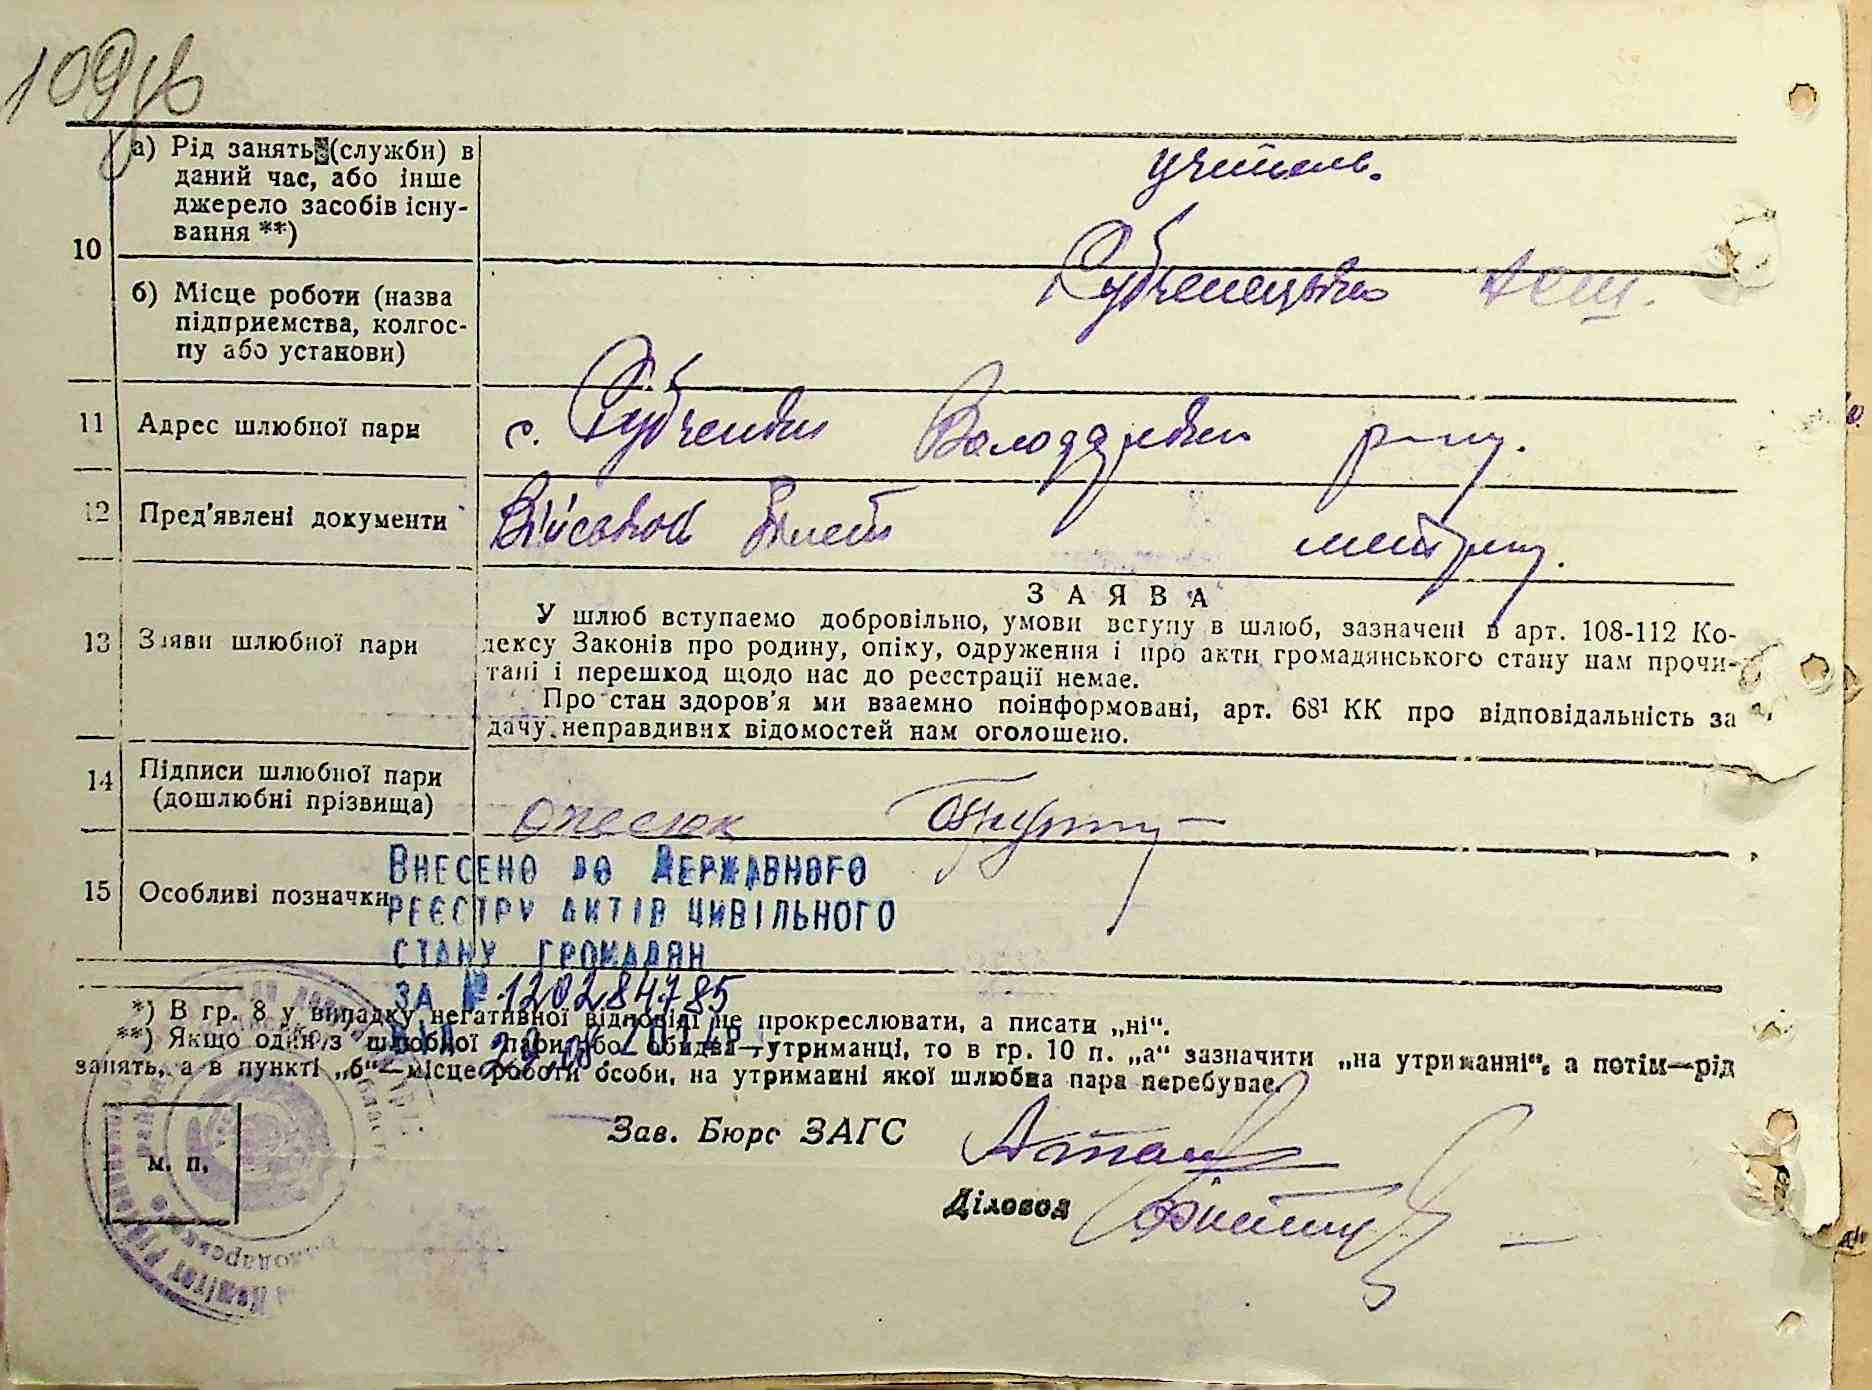 109
а) Рід занять (служби) в
даний час, або інше
джерело засобів існу-
вання **)
учитель.
10
б) Місце роботи (назва
підприємства, колгос-
пу або установи)
Рубченецька
11 Адрес шлюбної пари с. Рубченки Володарськ р-ну.
12 Пред'явлені документи Військов білет метрику.
13 Заяви шлюбної пари
ЗАЯВА
У шлюб вступаємо добровільно, умови вступу в шлюб, зазначені в арт. 108-112 Ко-
дексу Законів про родину, опіку, одруження і про акти громадянського стану нам прочи-
тані і перешкод щодо нас до реєстрації немає.
Про стан здоров'я ми взаємно поінформовані, арт. 68¹ КК про відповідальність за
дачу неправдивих відомостей нам оголошено.
14 Підписи шлюбної пари
(дошлюбні прізвища)
15 Особливі позначки
ВНЕСЕНО ДО ДЕРЖАВНОГО
РЕЄСТРУ АКТІВ ЦИВІЛЬНОГО
СТАНУ ГРОМАДЯН
ЗА № 120284785
*) В гр. 8 у випадку негативної відповіді не прокреслювати, а писати „ні“.
**) Якщо один з шлюбної пари або обидва—утриманці, то в гр. 10 п. „а“ зазначити „на утриманні“, а потім—рід
занять, а в пункті „б“—місце роботи особи, на утриманні якої шлюбна пара перебуває.
Зав. Бюро ЗАГС
м. п.
Діловод